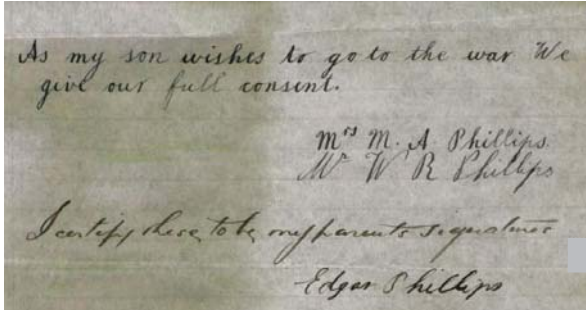 As my son wishes to go to the war We
give our full consent.
Mrs M. A. Phillips.
Mr W R Phillips
I certify these to be my parents signatures
Edgar Phillips